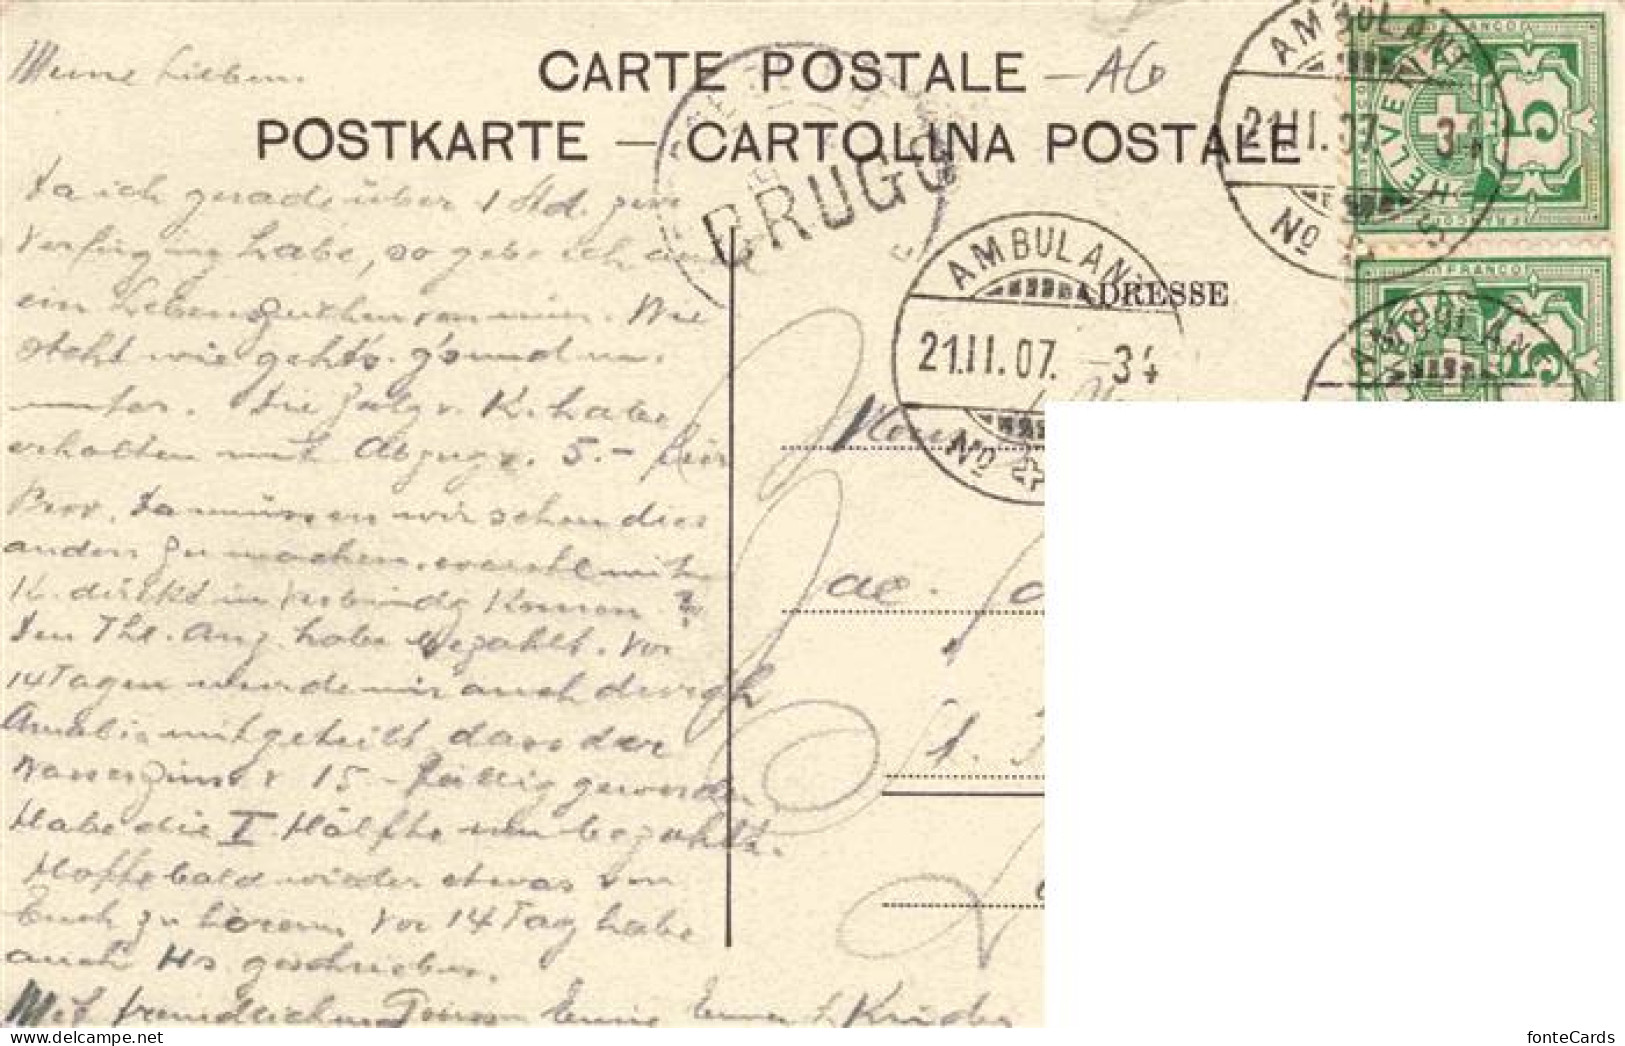 Meine Lieben.
CARTE POSTALE – AG
POSTKARTE — CARTOLINA POSTALE
BRUGG
AMBULANT
21.II.07. -34
No 5
HELVETIA
FRANCO
5
AMBULANT
21.II.07. -34
No
FRANCO
5
AMBULANT
ADRESSE
Da ich gerade über 1 Std. zur
Verfügung habe, so gebe ich auch
ein Lebenszeichen von mir. Wie
steht wie geht's. g'sund u.
munter. Die Zalg v. K. habe
erhalten mit Abzug v. 5.- für
Prov. Da müssen wir schon dies
anders zu machen, mit
K. direkt in Verbindg kommen?
Den Thl. Ang. habe bezahlt. Vor
14 Tagen wurde mir auch durch
mitgeteilt dass der
Wasserzins v 15.- fällig geworden
Habe die I Hälfte nun bezahlt.
Hoffe bald wieder etwas von
Euch zu hören. Vor 14 Tag habe
auch Hs. geschrieben.
Mit freundlichen Grüssen Euer
Jac.
St.